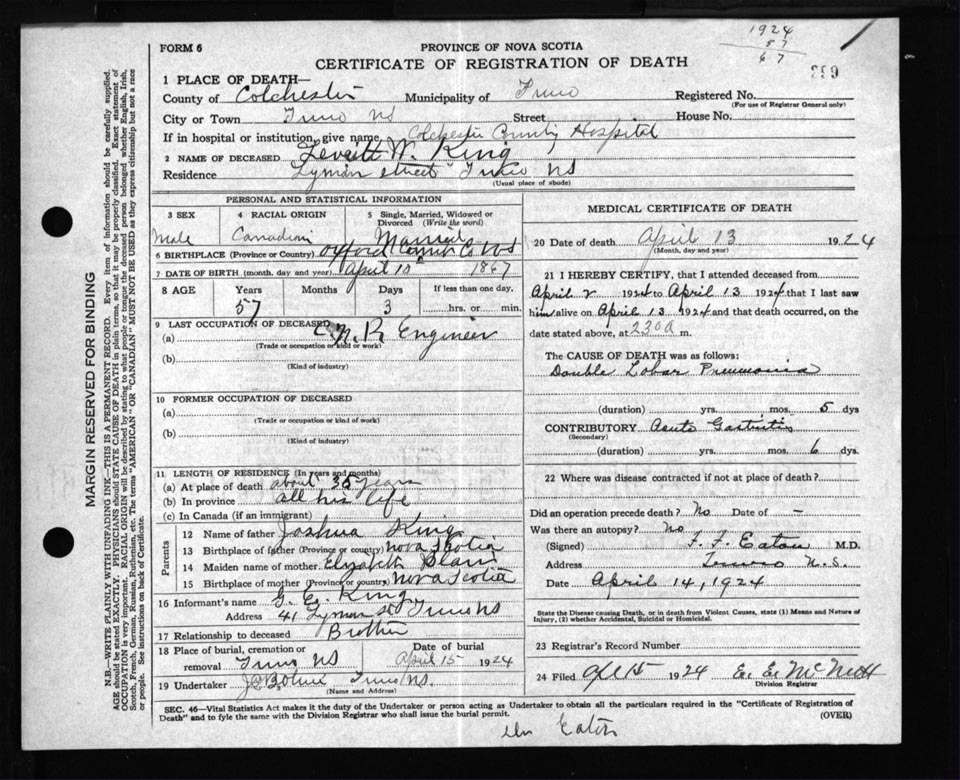 1924
57
67
399
FORM 6
PROVINCE OF NOVA SCOTIA
CERTIFICATE OF REGISTRATION OF DEATH
1 PLACE OF DEATH—
County of Colchester Municipality of Truro Registered No.
(For use of Registrar General only)
City or Town Truro NS Street House No.
If in hospital or institution, give name Colchester County Hospital
2 NAME OF DECEASED Leveitt W. King
Residence Lyman street Truro NS
(Usual place of abode)
PERSONAL AND STATISTICAL INFORMATION
3 SEX 4 RACIAL ORIGIN 5 Single, Married, Widowed or Divorced (Write the word)
Male Canadian Married
6 BIRTHPLACE (Province or Country) Oxford Co NS
7 DATE OF BIRTH (month, day and year) April 10 1867
8 AGE Years Months Days If less than one day,
57 3 hrs. or min.
9 LAST OCCUPATION OF DECEASED
(a) C.N.R Engineer
(Trade or occupation or kind or work)
(b)
(Kind of industry)
10 FORMER OCCUPATION OF DECEASED
(a)
(Trade or occupation or kind of work)
(b)
(Kind of industry)
11 LENGTH OF RESIDENCE (In years and months)
(a) At place of death about 35 years
(b) In province all his life
(c) In Canada (if an immigrant)
Parents
12 Name of father Joshua King
13 Birthplace of father (Province or country) Nova Scotia
14 Maiden name of mother Elizabeth
15 Birthplace of mother (Province or country) Nova Scotia
16 Informant's name G. E. King
Address 41 Lyman St Truro NS
17 Relationship to deceased Brother
18 Place of burial, cremation or removal Truro NS Date of burial April 15 1924
19 Undertaker Truro NS.
(Name and Address)
MEDICAL CERTIFICATE OF DEATH
20 Date of death April 13 1924
(Month, day and year)
21 I HEREBY CERTIFY, that I attended deceased from
April 2 1924 to April 13 1924 that I last saw
him alive on April 13 1924 and that death occurred, on the
date stated above, at 230a m.
The CAUSE OF DEATH was as follows:
Double Lobar Pneumonia
(duration) yrs. mos. 5 dys
CONTRIBUTORY Acute Gastritis
(Secondary)
(duration) yrs. mos. 6 dys
22 Where was disease contracted if not at place of death?
Did an operation precede death? No Date of —
Was there an autopsy? No
(Signed) F. F. Eaton M.D.
Address Truro N.S.
Date April 14, 1924
State the Disease causing Death, or in death from Violent Causes, state (1) Means and Nature of
Injury, (2) whether Accidental, Suicidal or Homicidal.
23 Registrar's Record Number
24 Filed 1924 E. E. McNutt
Division Registrar
SEC. 46—Vital Statistics Act makes it the duty of the Undertaker or person acting as Undertaker to obtain all the particulars required in the "Certificate of Registration of
Death" and to fyle the same with the Division Registrar who shall issue the burial permit. (OVER)
Eaton
MARGIN RESERVED FOR BINDING
N.B.—WRITE PLAINLY WITH UNFADING INK—THIS IS A PERMANENT RECORD. Every item of information should be carefully supplied.
AGE should be stated EXACTLY. PHYSICIANS should STATE CAUSE OF DEATH in plain terms, so that it may be properly classified. Exact statement of
OCCUPATION is very important. RACIAL ORIGIN will be described by stating to what people or tongue the deceased person belonged whether English, Irish,
Scotch, French, German, Russian, Ruthenian, etc. The terms "AMERICAN" OR "CANADIAN" MUST NOT BE USED as they express citizenship but not a race
or people. See instructions on back of Certificate.